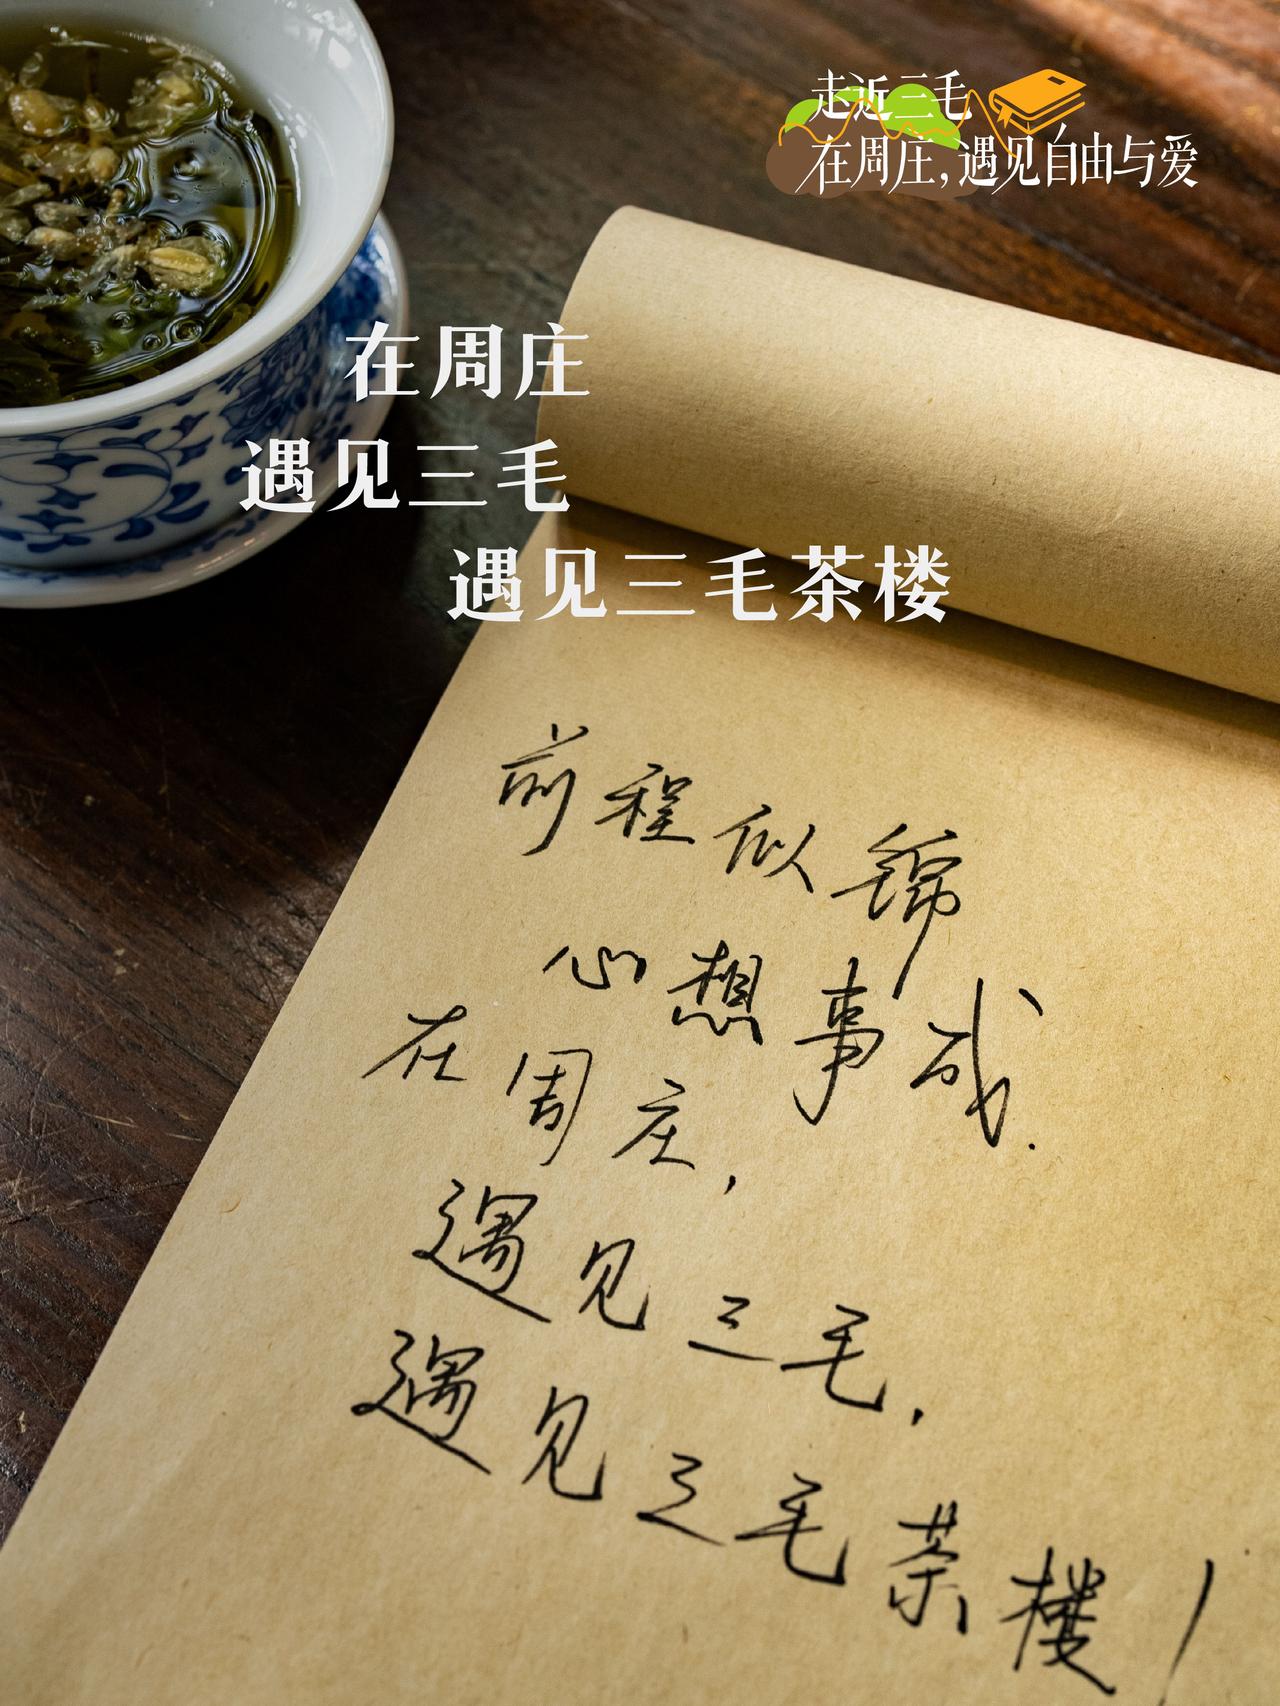 走近三毛
在周庄，遇见自由与爱
在周庄
遇见三毛
遇见三毛茶楼
前程似锦
心想事成.
在周庄，
遇见三毛，
遇见三毛茶楼！